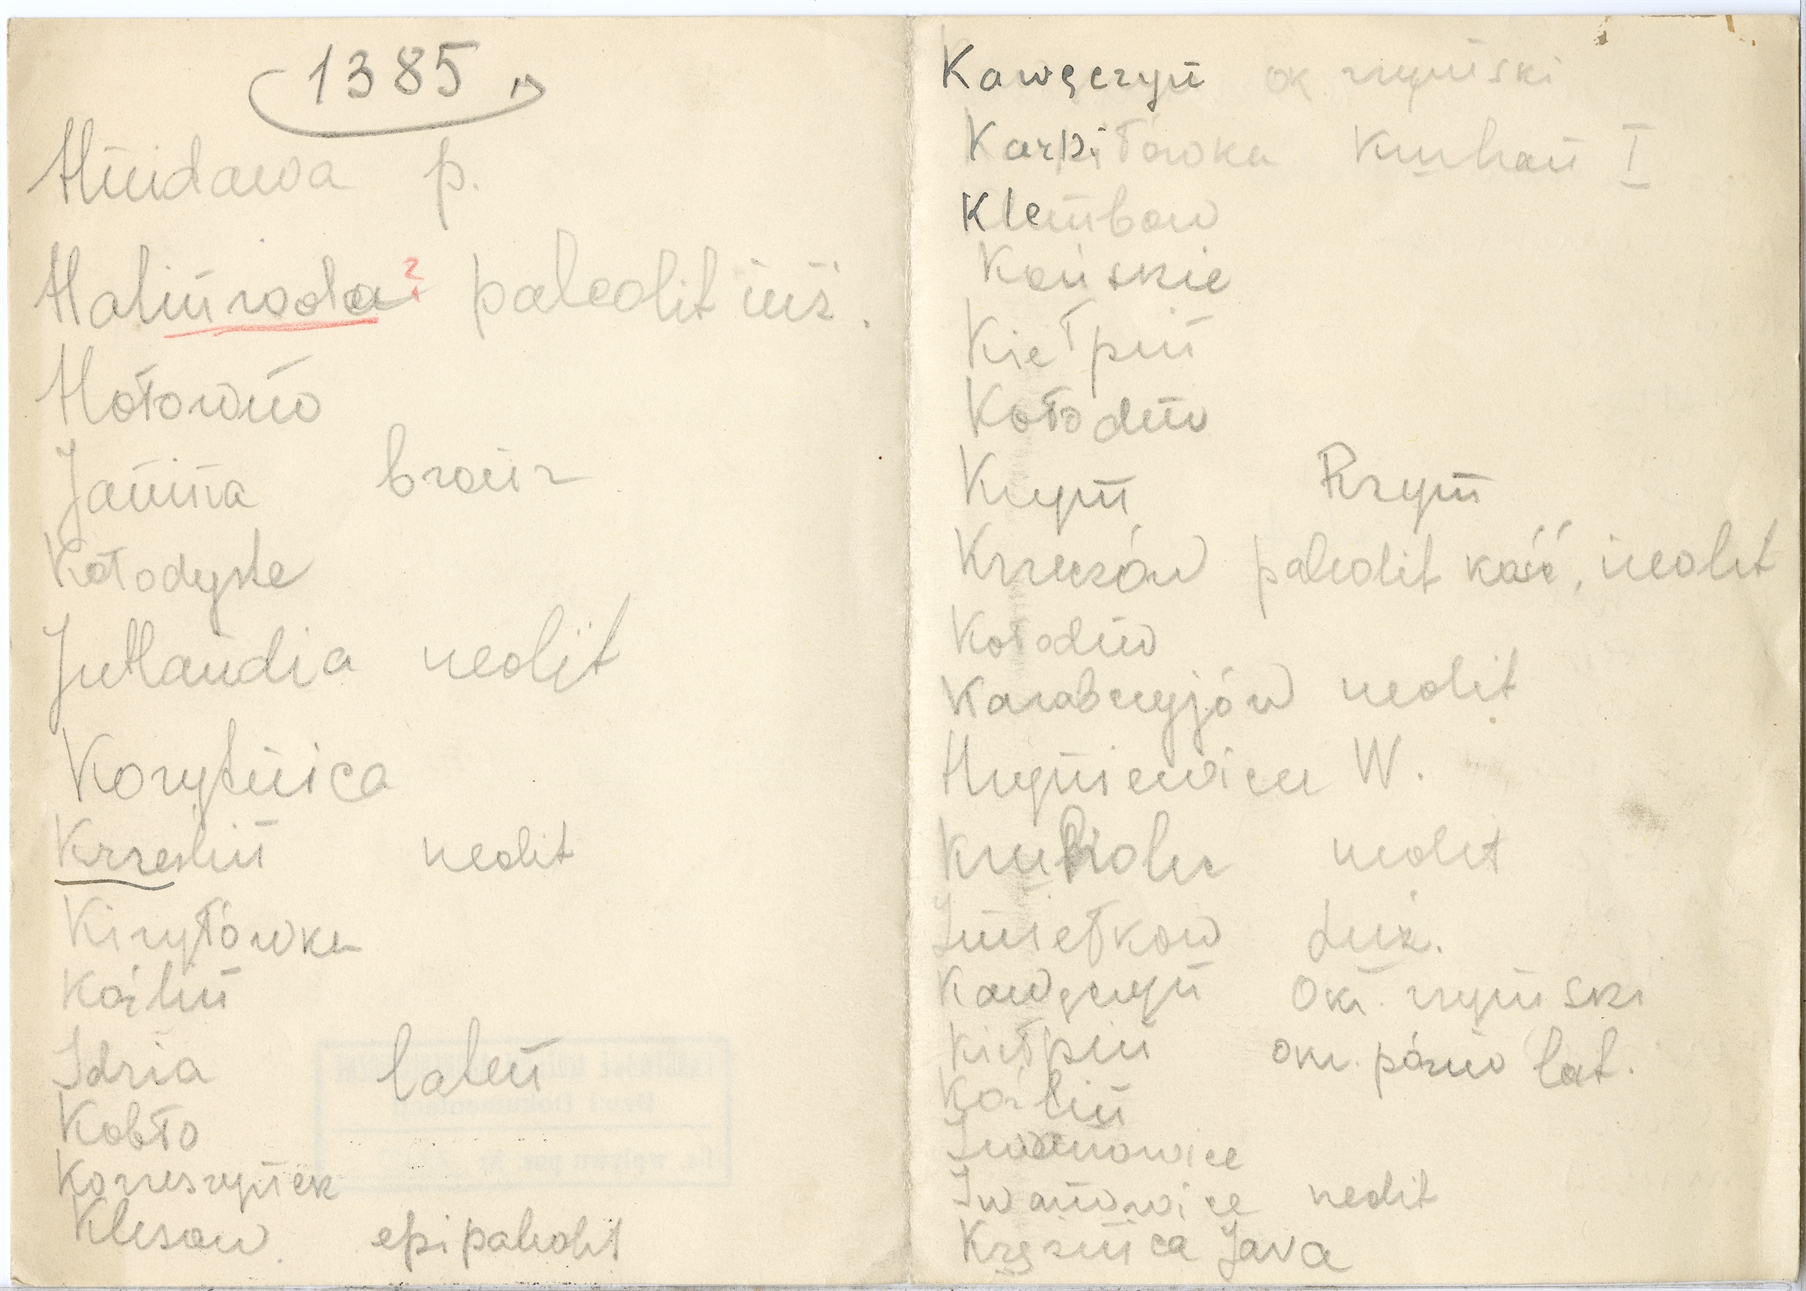 1385
Hnidawa p.
Halin woda? paleolit niż.
Hołowno
Janina brąz
Kołodyste
Jutlandia neolit
Korytnica
Krzeslin neolit
Kiryłówka
Koźlin
Idria laten
Kobło
Korzeszynek
Klesow epipaleolit
Kawęczyn ok rzymski
Karpiłówka Kurhan I
Klembow
Końskie
Kiełpin
Kołodno
Krym Rzym
Krzeszów paleolit kość, neolit
Kołodno
Karabczyjów neolit
Hryniewicz W.
neolit
Imiełkow Łuż.
Kawęczyn Okr. rzymski
Kiełpin okr. późno lat.
Koźlin
Iwanowice
Iwanowice neolit
Krężnica Jara